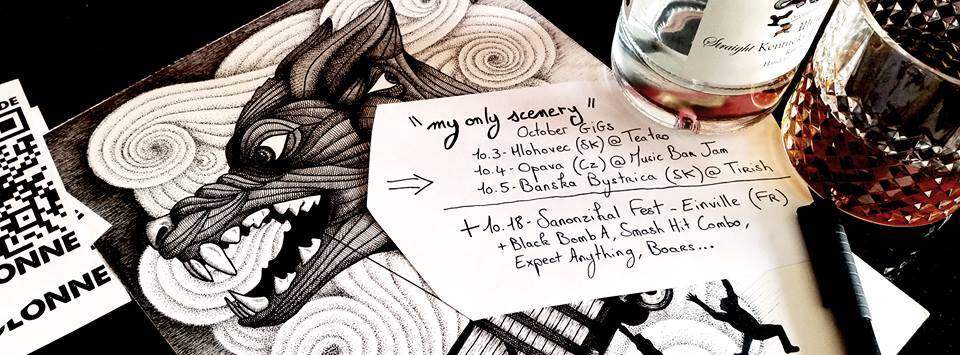 "my only scenery"
October GiGs
10.3- Hlohovec (SK) @ Teatro
10.4- Opava (CZ) @ Music Bar Jam
10.5- Banska Bystrica (SK) @ Tirish
+ 10.18- Sanonzihal Fest - Einville (FR)
+ Black Bomb A, Smash Hit Combo,
Expect Anything, Boars...
Straight
DE
ONNE
OLONNE